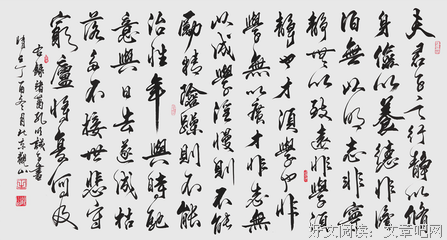 夫君子之行静以修
身儉以養德非澹
泊無以明志非寧
静無以致遠夫學須
静也才須學也非
學無以廣才非志無
以成學淫慢則不能
勵精險躁則不能
治性年與時馳
意與日去遂成枯
落多不接世悲守
窮廬將復何及
右録諸葛孔明誡子書
丁酉冬月於京
好文阅读：文章吧网